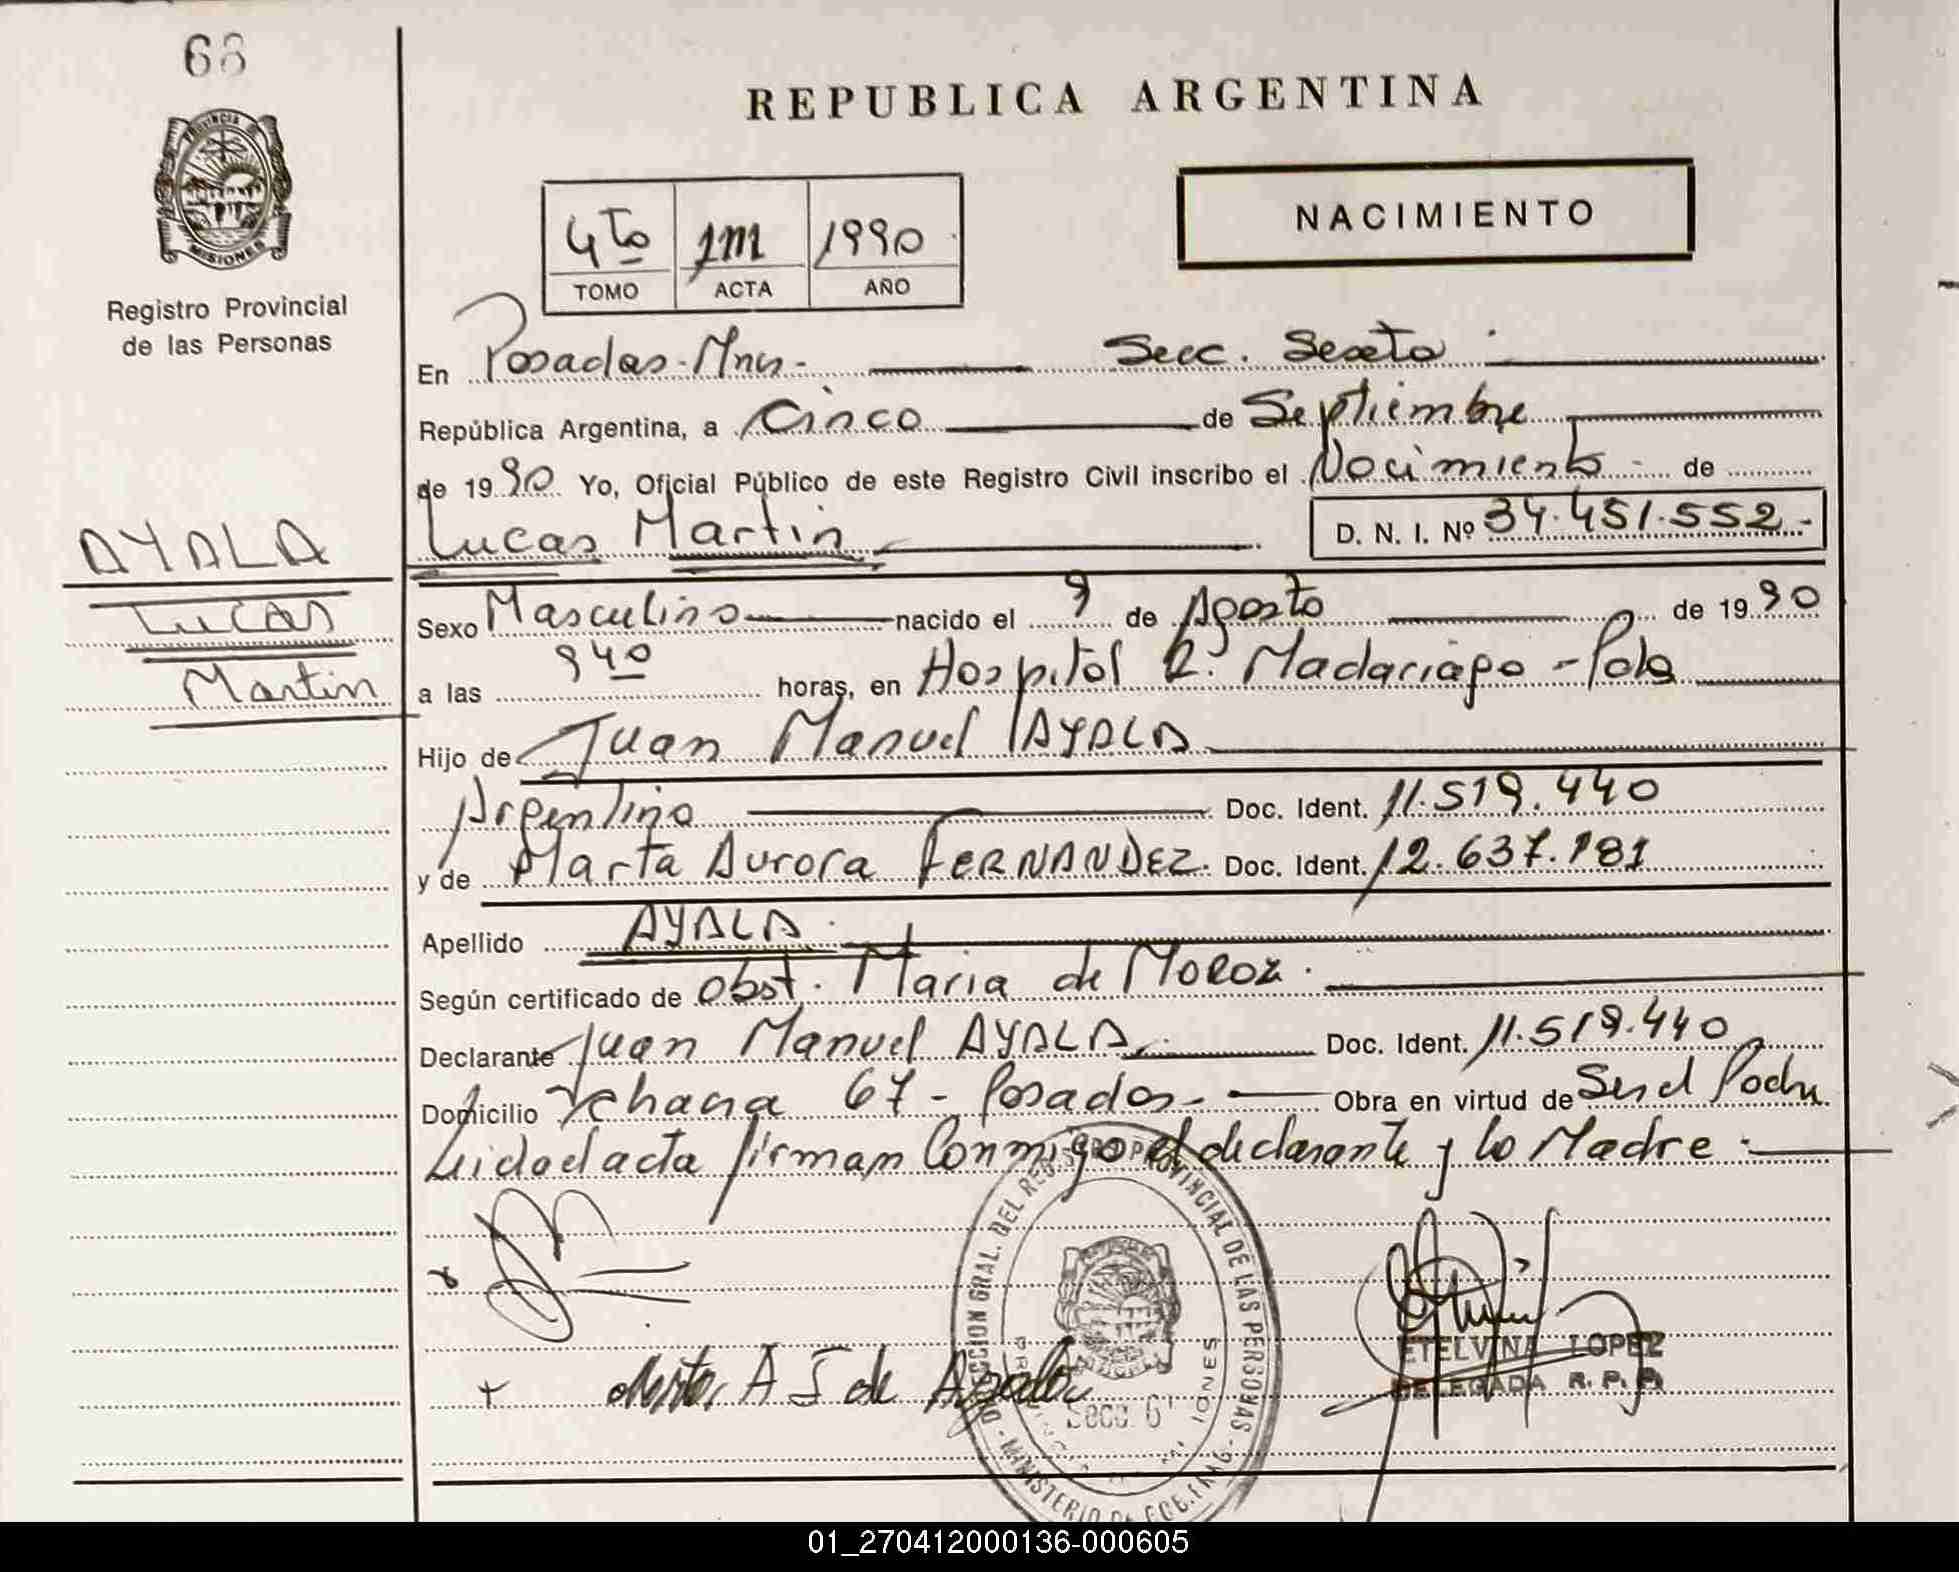 68
PROVINCIA DE
MISIONES
Registro Provincial
de las Personas
AYALA
Lucas
Martin
REPUBLICA ARGENTINA
NACIMIENTO
4to 1990
TOMO ACTA AÑO
En Posadas-Mnes- Secc. Sexta
República Argentina, a Cinco de Septiembre
de 1990 Yo, Oficial Público de este Registro Civil inscribo el Nacimiento de
Lucas Martin D. N. I. Nº 34.451.552
Sexo Masculino nacido el 9 de Agosto de 1990
a las 940 horas, en Hospital R. Madariaga - Pdas
Hijo de Juan Manuel AYALA
Argentino Doc. Ident. 11.519.440
y de Marta Aurora FERNANDEZ. Doc. Ident. 12.637.181
Apellido AYALA
Según certificado de obst. Maria de Moroz.
Declarante Juan Manuel AYALA Doc. Ident. 11.519.440
Domicilio 67 - Posadas- Obra en virtud de Ser el Padre
Leida el acta firman Conmigo el declarante y la Madre
DIRECCION GRAL. DEL REGISTRO PROVINCIAL DE LAS PERSONAS - MINISTERIO DE GOB.
Secc. 6
ETELVINA LOPEZ
DELEGADA R. P. P.
01_270412000136-000605